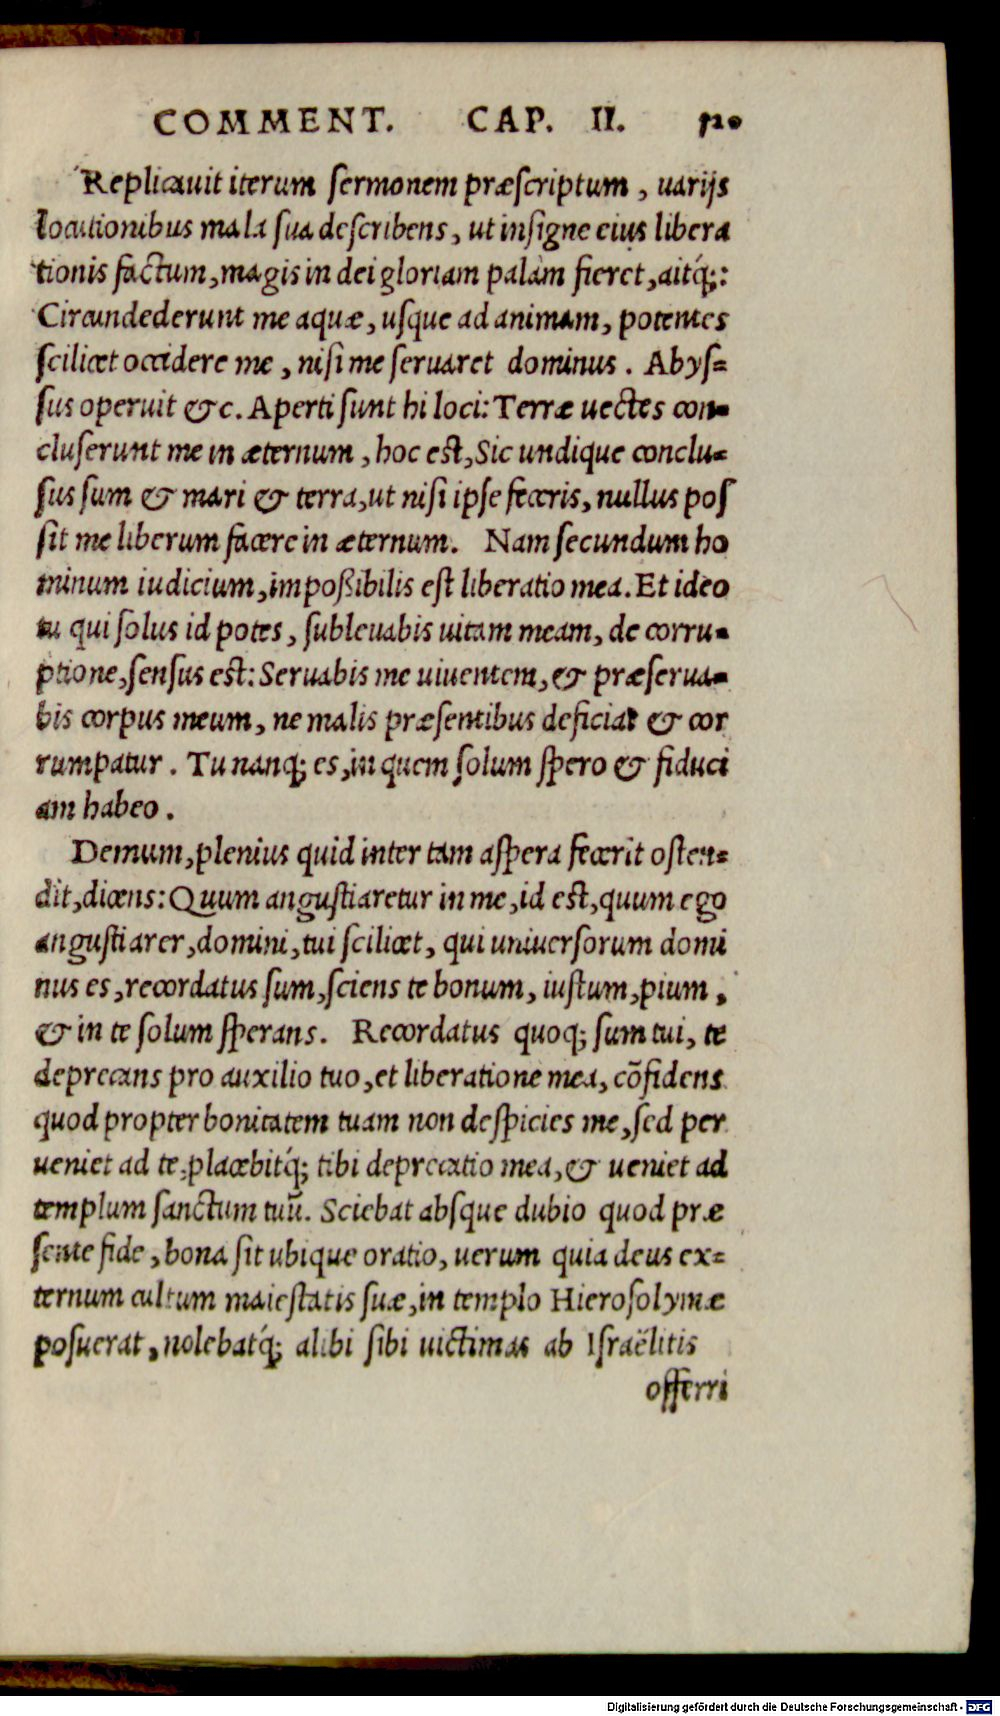 COMMENT. CAP. II. 520
Replicauit iterum sermonem præscriptum, uarijs
locutionibus mala sua describens, ut insigne eius libera
tionis factum, magis in dei gloriam palàm fieret, aitq́;:
Circundederunt me aquæ, usque ad animam, potentes
scilicet occidere me, nisi me seruaret dominus. Abys-
sus operuit &c. Aperti sunt hi loci: Terræ uectes con-
cluserunt me in æternum, hoc est, Sic undique conclu-
sus sum & mari & terra, ut nisi ipse feceris, nullus pos
sit me liberum facere in æternum. Nam secundum ho
minum iudicium, impoßibilis est liberatio mea. Et ideo
tu qui solus id potes, subleuabis uitam meam, de corru-
ptione, sensus est: Seruabis me uiuentem, & præserua-
bis corpus meum, ne malis præsentibus deficiat & cor
rumpatur. Tu nanq; es, in quem solum spero & fiduci
am habeo.
Demum, plenius quid inter tam aspera fecerit osten-
dit, dicens: Quum angustiaretur in me, id est, quum ego
angustiarer, domini, tui scilicet, qui uniuersorum domi
nus es, recordatus sum, sciens te bonum, iustum, pium,
& in te solum sperans. Recordatus quoq; sum tui, te
deprecans pro auxilio tuo, et liberatione mea, cõfidens
quod propter bonitatem tuam non despicies me, sed per
ueniet ad te, placebitq́; tibi deprecatio mea, & ueniet ad
templum sanctum tuũ. Sciebat absque dubio quod præ
sente fide, bona sit ubique oratio, uerum quia deus ex-
ternum cultum maiestatis suæ, in templo Hierosolymæ
posuerat, nolebatq́; alibi sibi uictimas ab Israëlitis
offerri
Digitalisierung gefördert durch die Deutsche Forschungsgemeinschaft - DFG